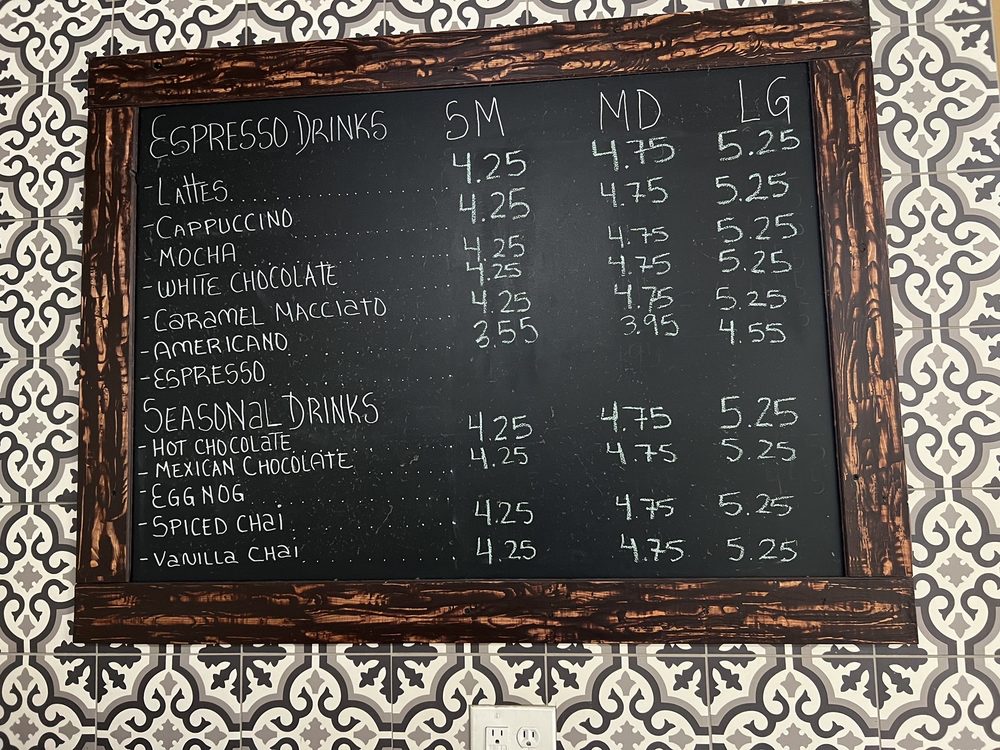 ESPRESSO DRINKS SM MD LG
-LATTES.................... 4.25 4.75 5.25
-CAPPUCCINO............... 4.25 4.75 5.25
-MOCHA.................... 4.25 4.75 5.25
-WHITE CHOCOLATE.......... 4.25 4.75 5.25
-CARAMEL MACCIATO....... 4.25 4.75 5.25
-AMERICANO............... 3.55 3.95 4.55
-ESPRESSO................
SEASONAL DRINKS
-HOT CHOCOLATE.......... 4.25 4.75 5.25
-MEXICAN CHOCOLATE...... 4.25 4.75 5.25
-EGGNOG.................
-SPICED CHAI............. 4.25 4.75 5.25
-VANILLA CHAI............ 4.25 4.75 5.25